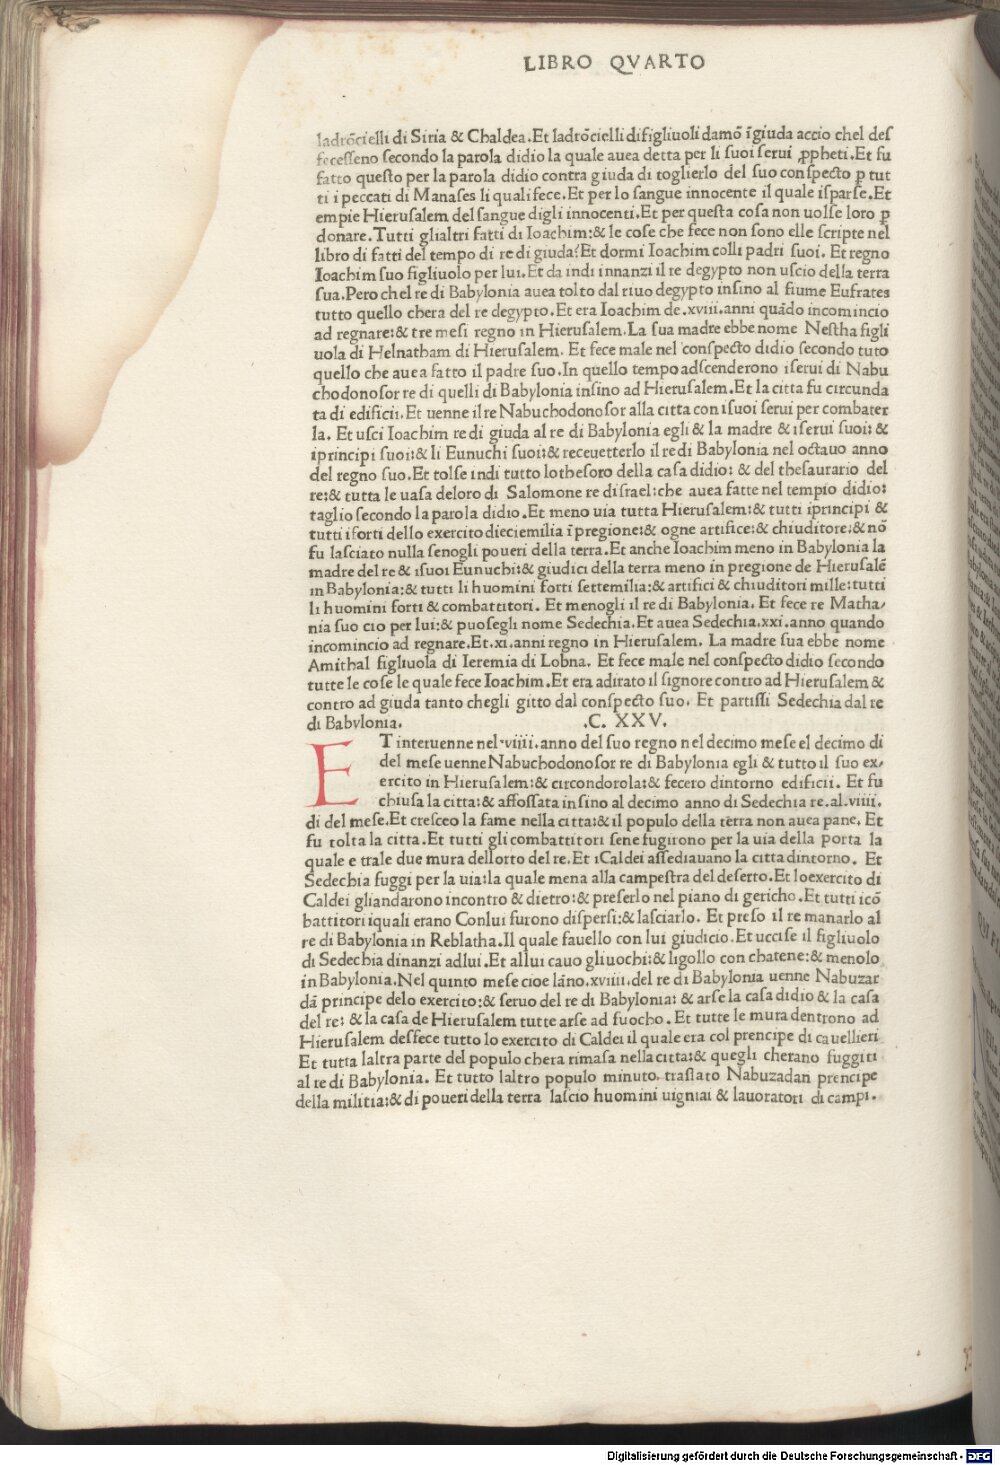 LIBRO QVARTO
ladrōcielli di Siria & Chaldea.Et ladrōcielli difigliuoli damō īgiuda accio chel deſ
feceſſeno ſecondo la parola didio la quale auea detta per li ſuoi ſerui ꝓpheti.Et fu
fatto queſto per la parola didio contra giuda di toglierlo del ſuo conſpecto ꝑ tut
ti i peccati di Manaſes li quali fece.Et per lo ſangue innocente il quale iſparſe.Et
empie Hieruſalem del ſangue digli innocenti.Et per queſta coſa non uolſe loro ꝑ
donare.Tutti glialtri fatti di Ioachim:& le coſe che fece non ſono elle ſcripte nel
libro di fatti del tempo di re di giuda?Et dormi Ioachim colli padri ſuoi. Et regno
Ioachim ſuo figliuolo per lui.Et da indi innanzi il re degypto non uſcio della terra
ſua.Pero chel re di Babylonia auea tolto dal riuo degypto inſino al fiume Eufrates
tutto quello chera del re degypto.Et era Ioachim de.xviii.anni quādo incomincio
ad regnare:& tre meſi regno in Hieruſalem.La ſua madre ebbe nome Neſtha figli
uola di Helnatham di Hieruſalem. Et fece male nel conſpecto didio ſecondo tuto
quello che auea fatto il padre ſuo.In quello tempo adſcenderono iſerui di Nabu
chodonoſor re di quelli di Babylonia inſino ad Hieruſalem.Et la citta fu circunda
ta di edificii.Et uenne il re Nabuchodonoſor alla citta con iſuoi ſerui per combater
la. Et uſci Ioachim re di giuda al re di Babylonia egli & la madre & iſerui ſuoi: &
iprincipi ſuoi:& li Eunuchi ſuoi:& receuetterlo il re di Babylonia nel octauo anno
del regno ſuo.Et tolſe indi tutto lotheſoro della caſa didio: & del theſaurario del
re:& tutta le uaſa deloro di Salomone re diſrael:che auea fatte nel tempio didio:
taglio ſecondo la parola didio.Et meno uia tutta Hieruſalem:& tutti iprincipi &
tutti iforti dello exercito dieciemilia ī pregione:& ogne artifice:& chiuditore:& nō
fu laſciato nulla ſenogli poueri della terra.Et anche Ioachim meno in Babylonia la
madre del re & iſuoi Eunuchi:& giudici della terra meno in pregione de Hieruſalē
in Babylonia:& tutti li huomini forti ſettemilia:& artifici & chiuditori mille:tutti
li huomini forti & combattitori. Et menogli il re di Babylonia. Et fece re Matha/
nia ſuo cio per lui:& puoſegli nome Sedechia.Et auea Sedechia.xxi.anno quando
incomincio ad regnare.Et.xi.anni regno in Hieruſalem. La madre ſua ebbe nome
Amithal figliuola di Ieremia di Lobna. Et fece male nel conſpecto didio ſecondo
tutte le coſe le quale fece Ioachim.Et era adirato il ſignore contro ad Hieruſalem &
contro ad giuda tanto chegli gitto dal conſpecto ſuo. Et partiſſi Sedechia dal re
di Babylonia. .C. XXV.
ET interuenne nel.viiii.anno del ſuo regno nel decimo meſe el decimo di
del meſe uenne Nabuchodonoſor re di Babylonia egli & tutto il ſuo ex/
ercito in Hieruſalem:& circondorola:& fecero dintorno edificii. Et fu
chiuſa la citta:& affoſſata inſino al decimo anno di Sedechia re.al.viiii.
di del meſe.Et creſceo la fame nella citta:& il populo della terra non auea pane. Et
fu rolta la citta.Et tutti gli combattitori ſene fugirono per la uia della porta la
quale e trale due mura dellorto del re.Et i Caldei aſſediauano la citta dintorno. Et
Sedechia fuggi per la uia:la quale mena alla campeſtra del deſerto.Et loexercito di
Caldei gliandarono incontro & dietro:& preſerlo nel piano di gericho.Et tutti icō
battitori iquali erano Conlui furono diſperſi:& laſciarlo. Et preſo il re manarlo al
re di Babylonia in Reblatha.Il quale fauello con lui giudicio.Et ucciſe il figliuolo
di Sedechia dinanzi adlui.Et allui cauo gliuochi:& ligollo con chatene:& menolo
in Babylonia.Nel quinto meſe cioe lāno.xviiii.del re di Babylonia uenne Nabuzar
dā principe delo exercito:& ſeruo del re di Babylonia: & arſe la caſa didio & la caſa
del re: & la caſa de Hieruſalem tutte arſe ad fuocho. Et tutte le mura dentrono ad
Hieruſalem deſfece tutto lo exercito di Caldei il quale era col prencipe di cauellieri
Et tutta laltra parte del populo chera rimaſa nella citta:& quegli cherano fuggiti
al re di Babylonia. Et tutto laltro populo minuto traſlato Nabuzadan prencipe
della militia:& di poueri della terra laſcio huomini uigniai & lauoratori di campi.
Digitalisierung gefördert durch die Deutsche Forschungsgemeinschaft - DFG